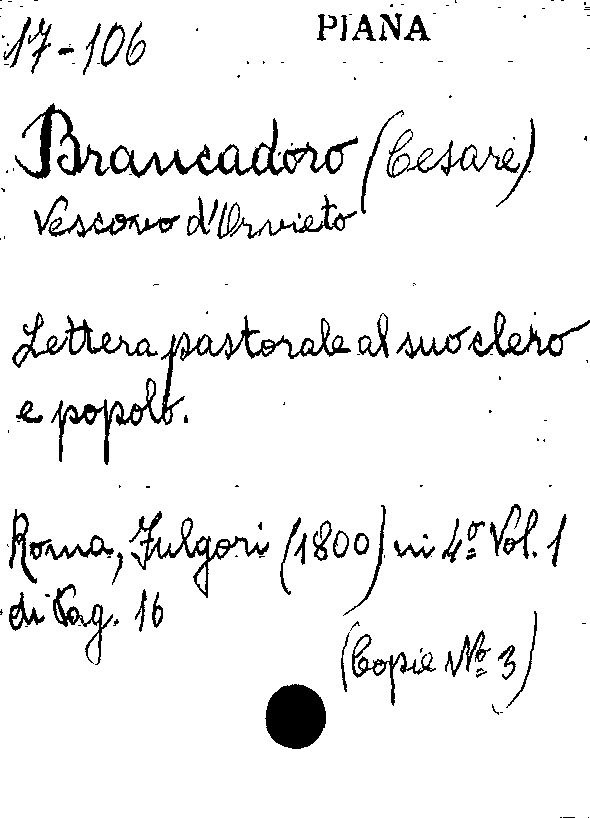 PIANA
17-106
Brancadoro (Cesare)
Vescovo d'Orvieto
Lettera pastorale al suo clero
e popolo.
Roma, Fulgori (1800) in 4º Vol. 1
di Pag. 16
(Copie Nº 3)